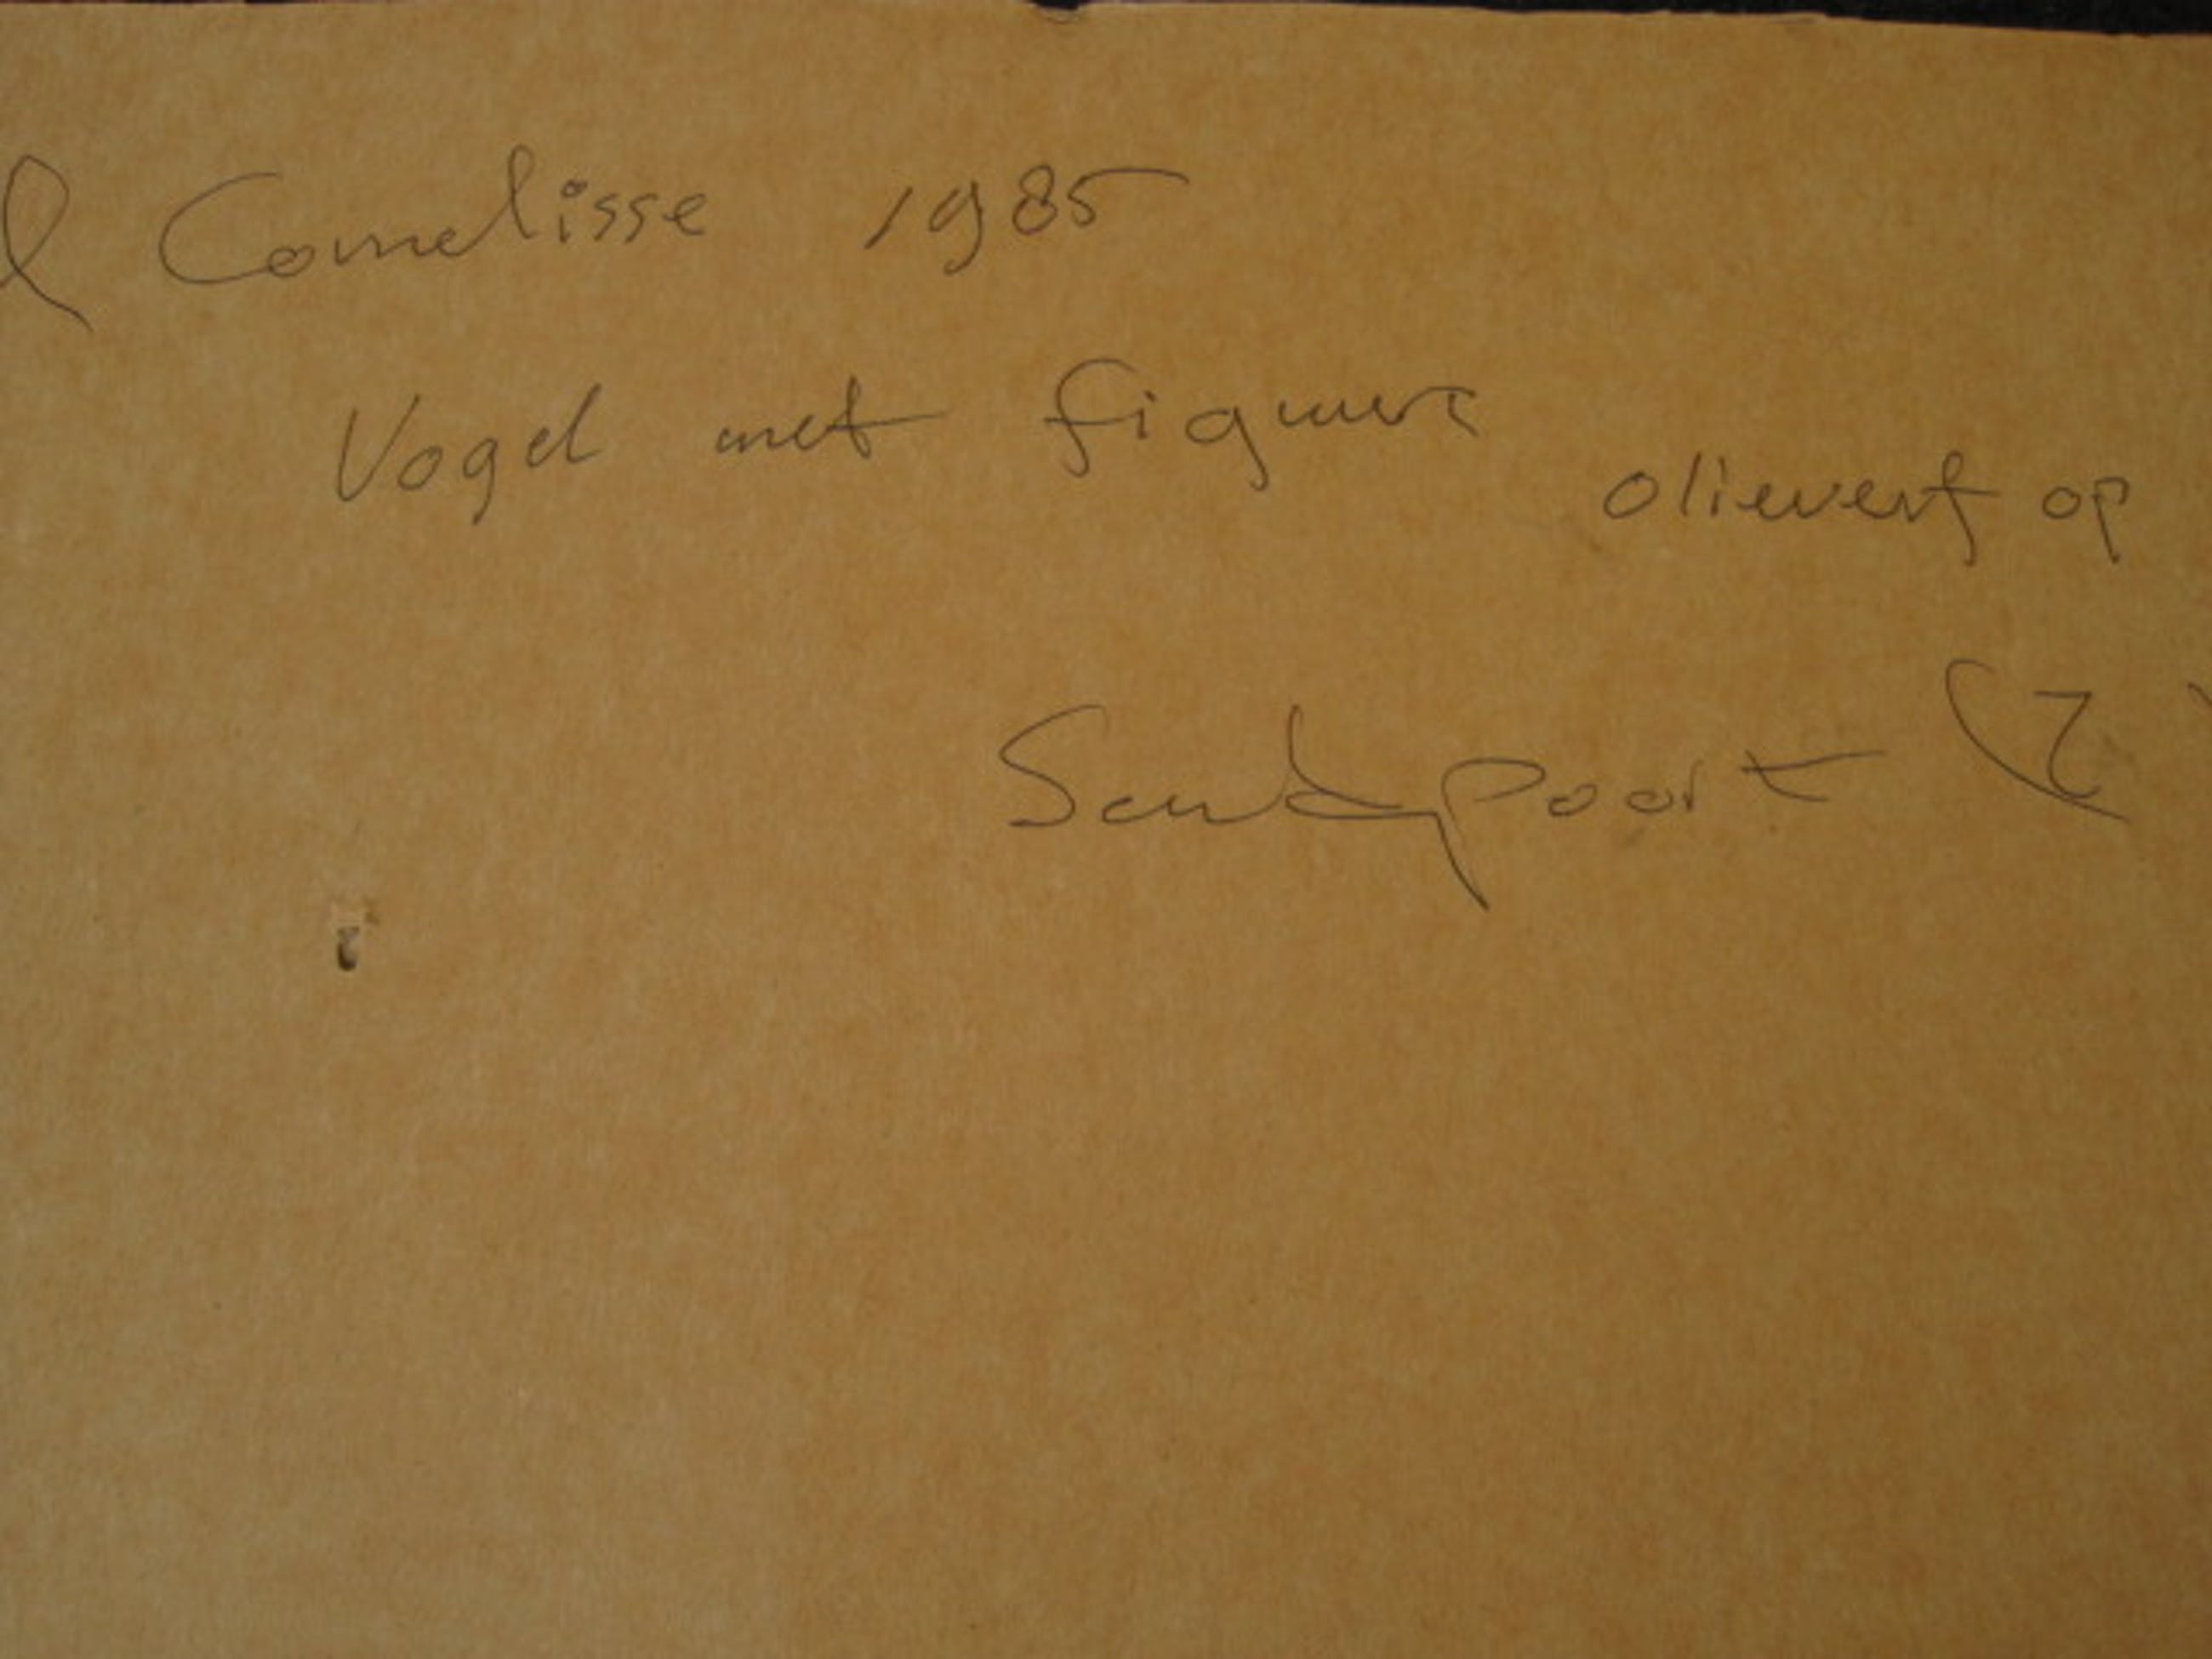 l Cornelisse 1985
Vogel met figuur
olieverf op
Santpoort (Z)